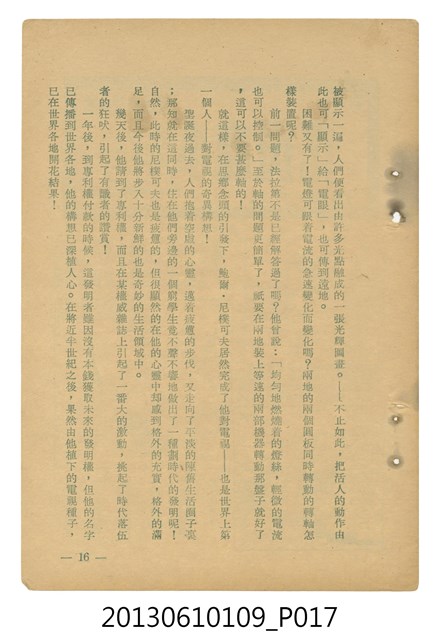 被顯示一遍，人們便看出由許多光點融成的一張光輝圖畫。——不止如此，把活人的動作由
此也可「顯示」給「電眼」，也可傳到遠地。
困難又有了！電燈可跟着電流的急速變化而變化嗎？兩地的兩個圓板同時轉動的轉軸怎
樣裝置呢？
前一問題，法拉第不是已經解答過了嗎？他曾說：「均勻地燃燒着的燈絲，輕微的電流
也可以控制。」至於軸的問題更簡單了，祗要在兩地裝上等速的兩部機器轉動那盤子就好了
，還可以不要甚麼軸的！
就這樣，在思鄉念頭的引發下，鮑爾·尼樸可夫居然完成了他對電視——也是世界上第
一個人——對電視的奇異構想！
聖誕夜過去，人們抱着空虛的心靈，邁着疲憊的步伐，又走向了平淡的陳舊生活圈子裏
；那知就在這同時，住在他們旁邊的一個窮學生竟不聲不響地做出了一種劃時代的發明呢！
自然，此時的尼樸可夫也是疲憊的，但很顯然的在他的心靈中却感到格外的充實，格外的滿
足，而且今後他將步入十分新鮮的也是奇妙的生活領域中。
幾天後，他請到了專利權，而且在某權威雜誌上引起了一番大的激動，挑起了時代落伍
者的狂吠，引起了有識者的讚賞！
一年後，到專利權付款的時候，這發明者雖因沒有本錢獲取未來的發明權，但他的名字
已傳播到世界各地，他的構想已深植人心。在將近半世紀之後，果然由他植下的電視種子，
已在世界各地開花結果！
— 16 —
20130610109_P017